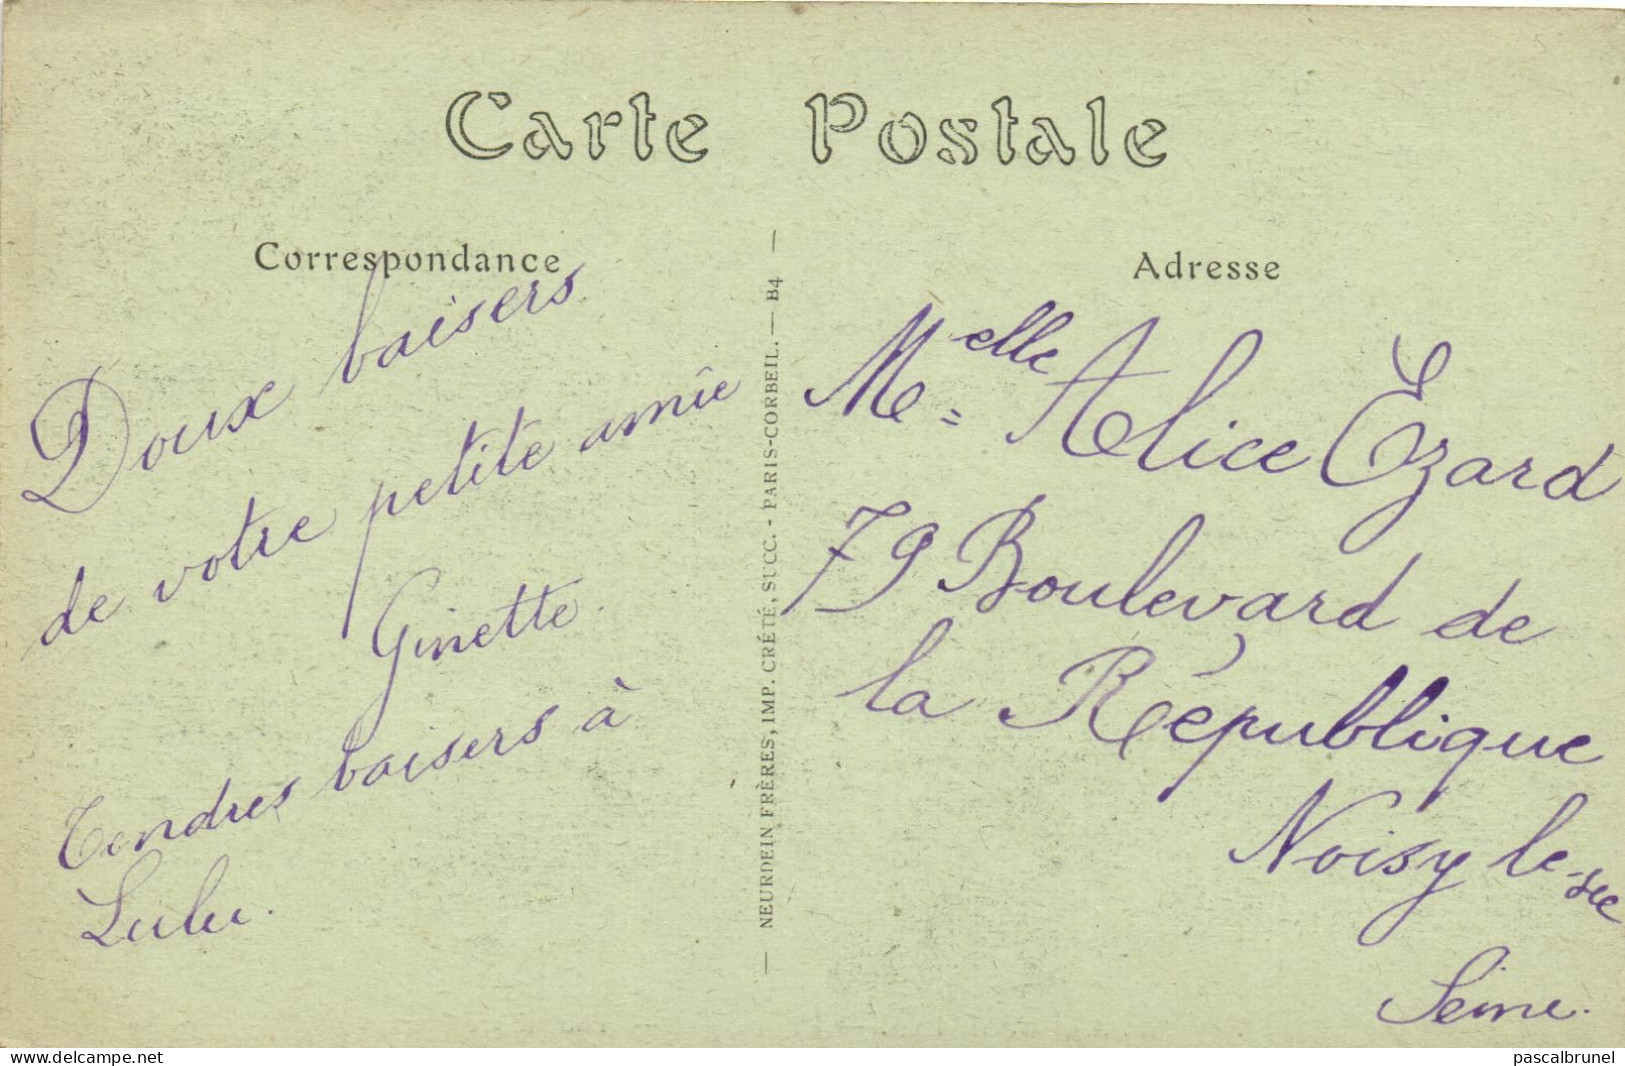 Carte Postale
Correspondance
Doux baisers
de votre petite amie
Ginette.
Tendres baisers à
Lulu.
— NEURDEIN FRÈRES, IMP. CRÉTÉ, SUCC. - PARIS-CORBEIL. — B4 —
Adresse
Melle Alice Ézard
79 Boulevard de
la République
Noisy le-sec
Seine.
www.delcampe.net
pascalbrunel